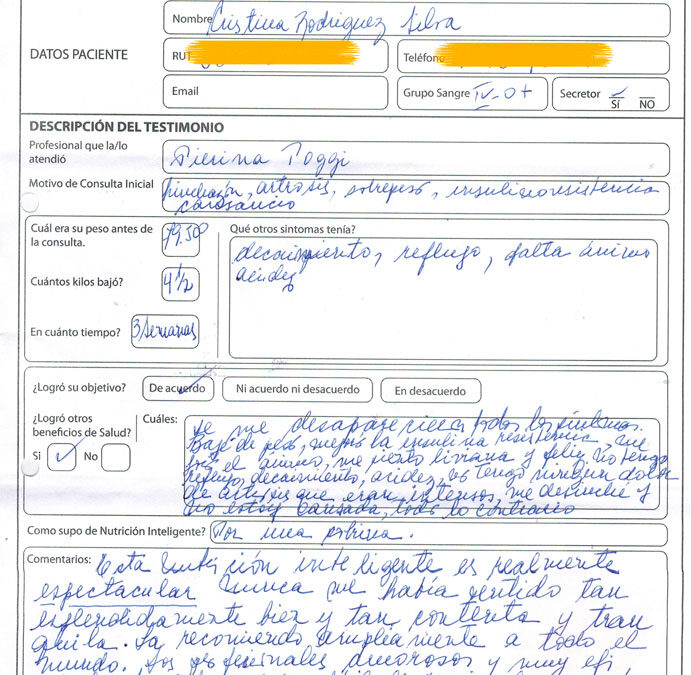 Nombre Cristina Rodriguez Silva
DATOS PACIENTE
RUT
Teléfono
Email
Grupo Sangre IV-O+
Secretor SÍ NO
DESCRIPCIÓN DEL TESTIMONIO
Profesional que la/lo atendió
Pierina Poggi
Motivo de Consulta Inicial
hinchazón, artrosis, sobrepeso, insulinoresistencia
cansancio
Cuál era su peso antes de la consulta.
79.500
Cuántos kilos bajó?
4 1/2
En cuánto tiempo?
3 Semanas
Qué otros sintomas tenía?
decaimiento, reflujo, falta ánimo
acidez
¿Logró su objetivo?
De acuerdo
Ni acuerdo ni desacuerdo
En desacuerdo
¿Logró otros beneficios de Salud?
Sí No
Cuáles:
se me desaparecieron todos los síntomas.
Bajé de peso, mejoró la insulina resistencia, me
el ánimo, me siento liviana y feliz no tengo
reflujo, decaimiento, acidez, no tengo ningún dolor
de artrosis que eran intensos, me deshinché y
no estoy cansada, todo lo contrario
Como supo de Nutrición Inteligente? Por una prima.
Comentarios: Esta Nutrición inteligente es realmente
espectacular nunca me había sentido tan
esplendidamente bien y tan contenta y tran
quila. La recomiendo ampliamente a todo el
mundo. Los profesionales amorosos y muy efi,